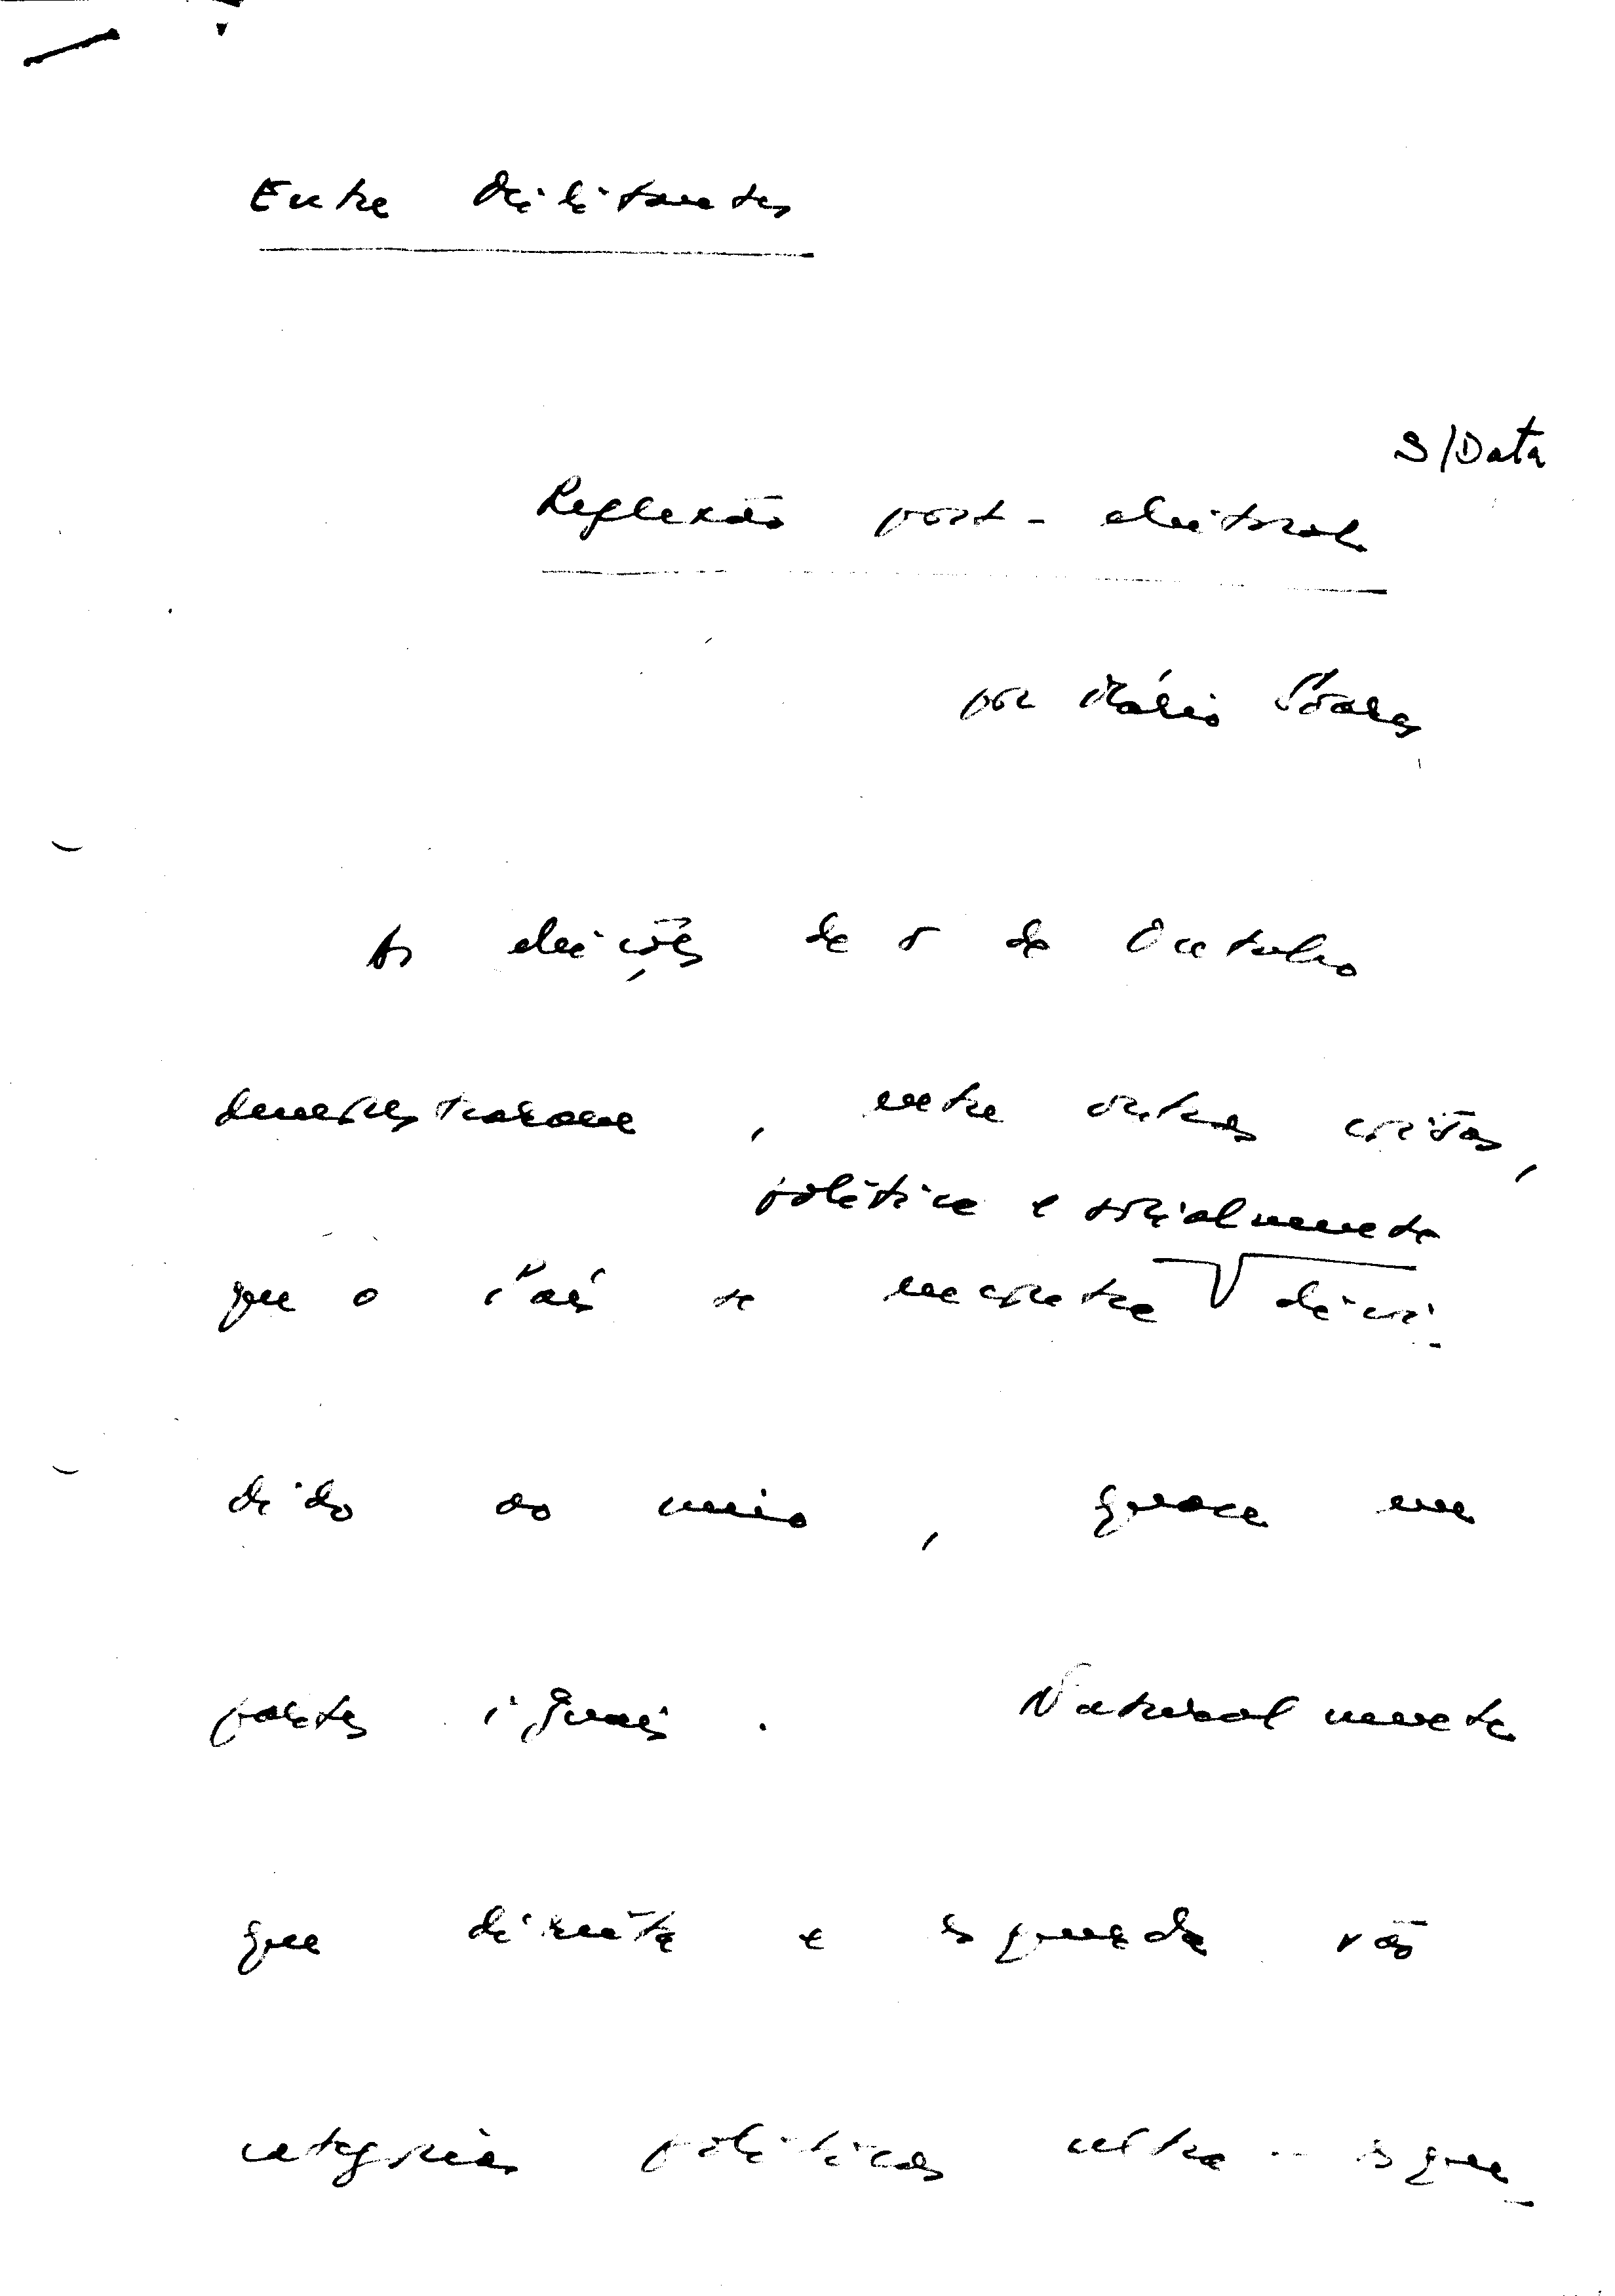 Entre Militantes
S/Data
Reflexão post-eleitoral
por Mário Soares
As eleições de 5 de Outubro
demonstraram, entre outras coisas,
política e socialmente
que o País se encontra divi-
dido ao meio, quase em
partes iguais. Naturalmente
que direita e esquerda são
categorias políticas ultra-esque-